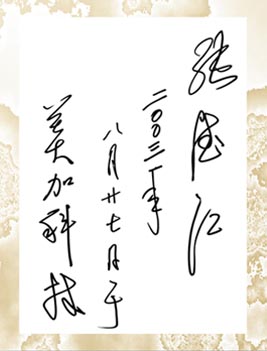 张德江
二〇〇三年
八月廿七日于
美加科技